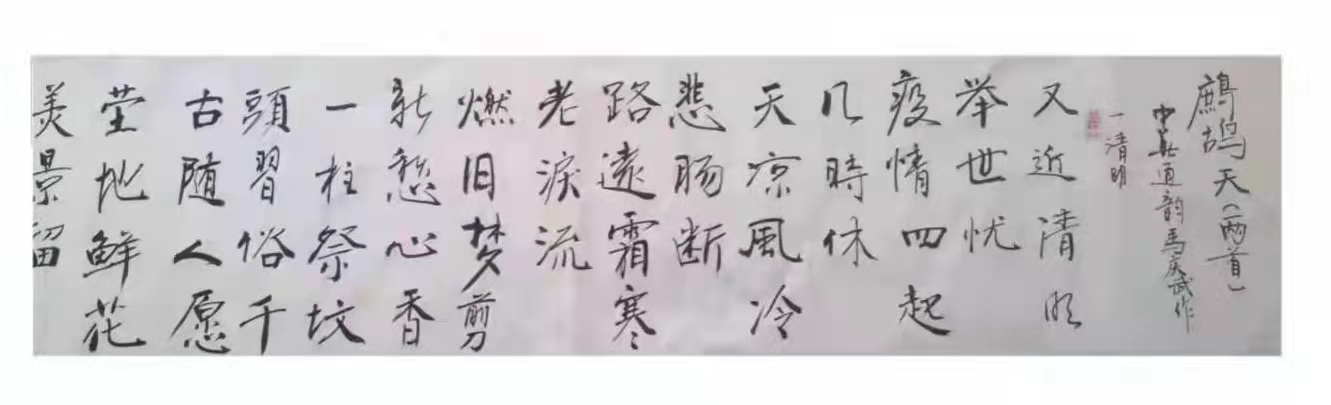 鷓鸪天（两首）
中华通韵马庆武作
一清明
又近清明
举世忧
疫情四起
几時休
天凉風冷
悲肠断
路遠霜寒
老淚流
燃旧梦剪
新愁心香
一柱祭坟
頭習俗千
古随人愿
茔地鲜花
美景留